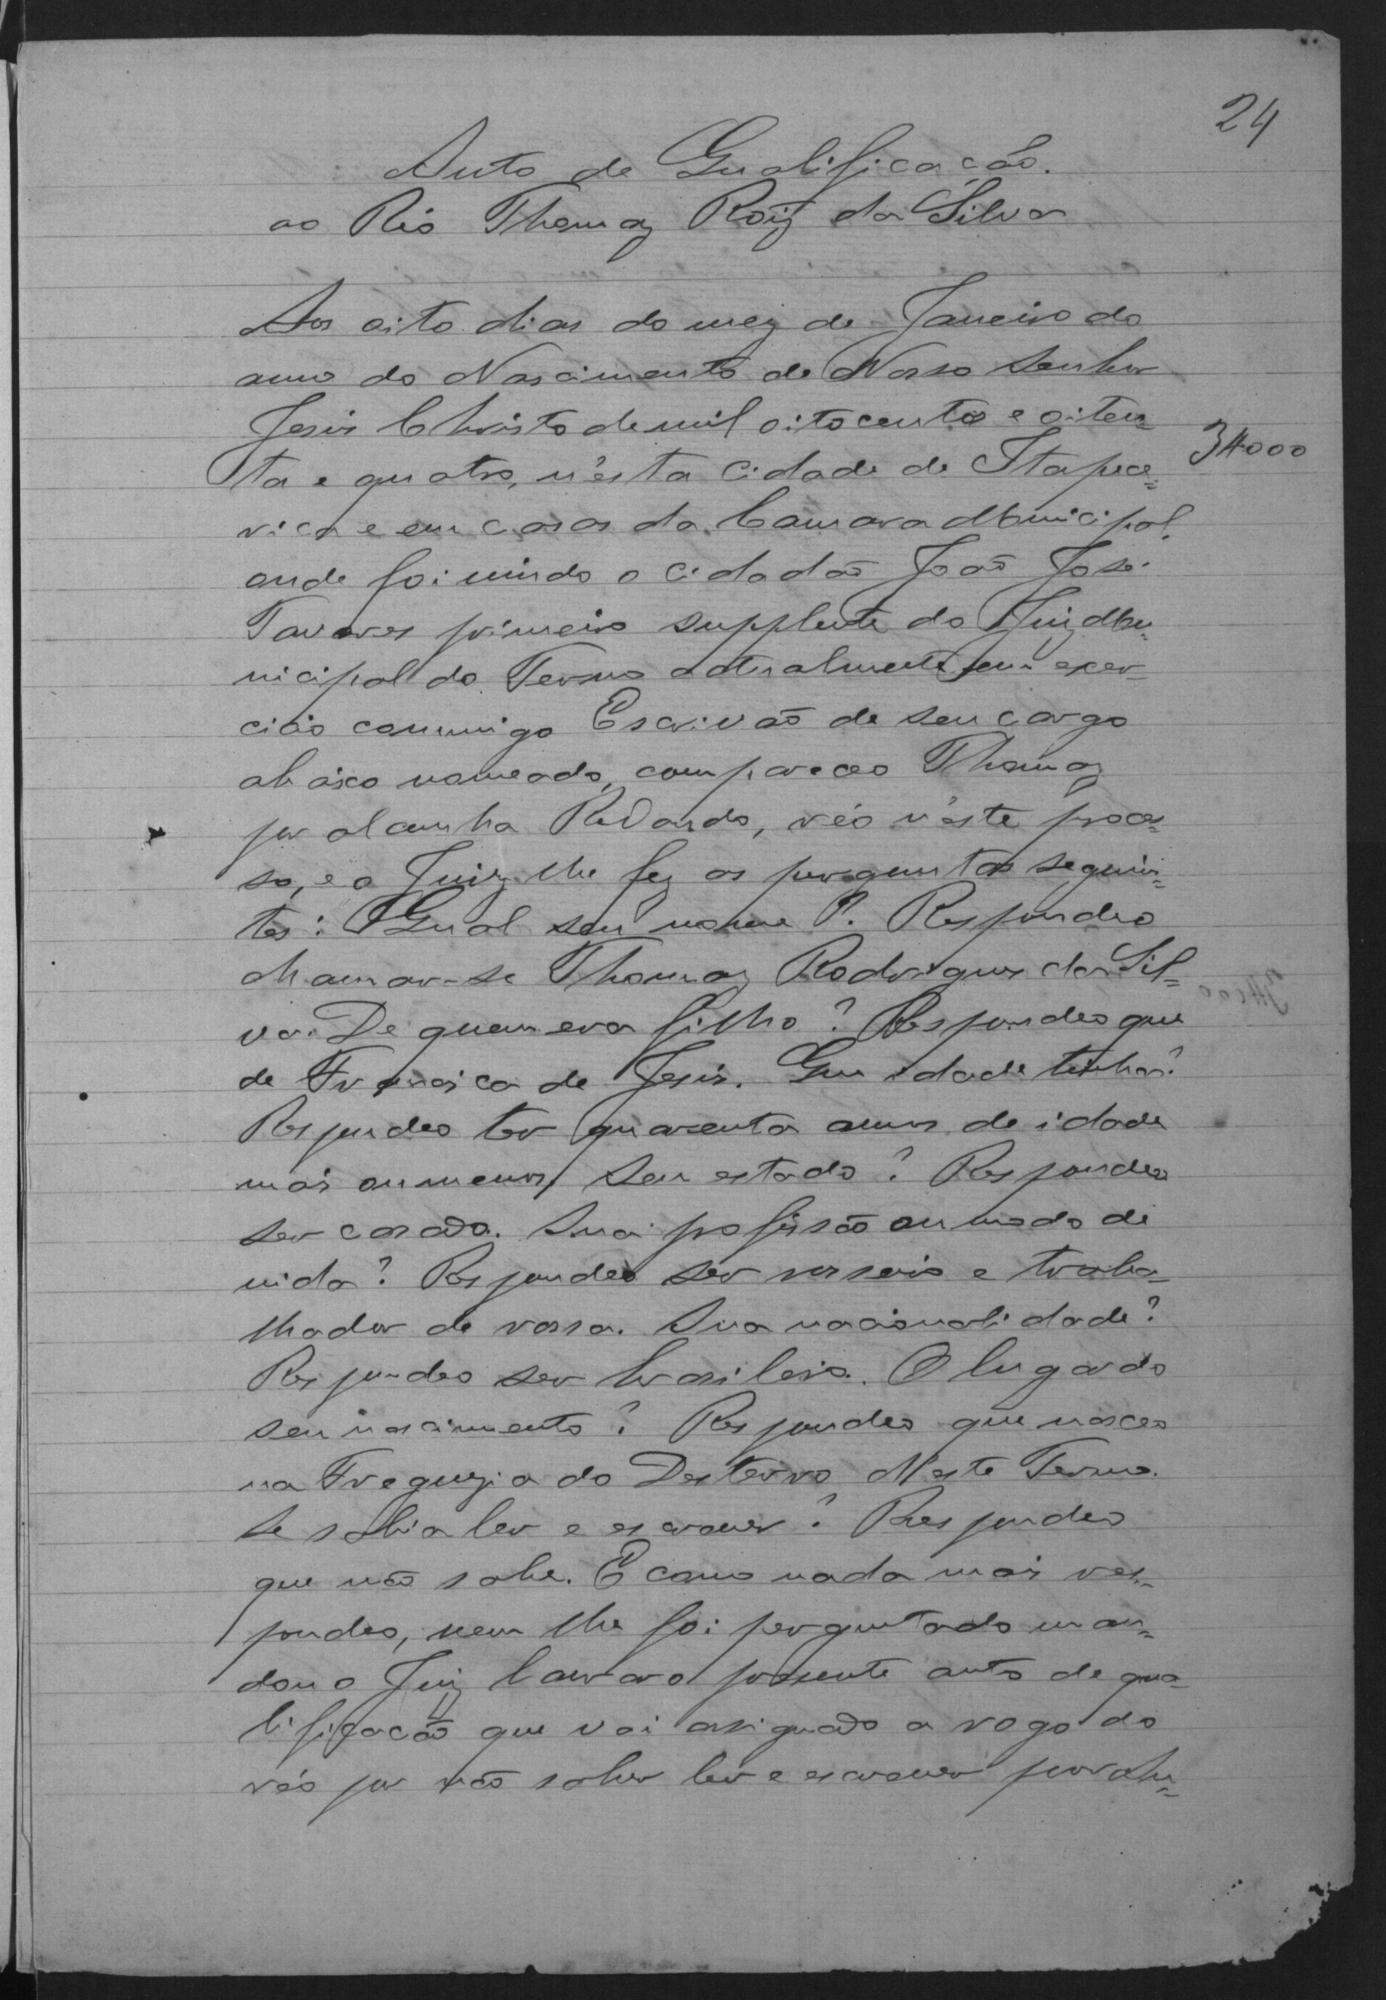 24
Auto de Qualificação.
ao Réo Thomaz Roiz da Silva
Aos oito dias do mez de Janeiro do
anno do Nascimento de Nosso Senhor
Jesus Christo de mil oitocentos e oiten=
ta e quatro, n'esta cidade de Itapece=
rica e em casas da Camara Municipal,
onde foi vindo o cidadão João José
Tavares primeiro supplente do Juiz Mu=
nicipal do Termo actualmente em exer-
cicio commigo Escrivão de seu cargo
abaixo nomeado, compareceo Thomaz
por alcunha, réo n'este proces=
so, e o Juiz lhe fez as perguntas seguin=
tes: Qual seu nome? Respondeo
chamar-se Thomaz Rodrigues da Sil=
va. De quem era filho? Respondeo que
de Francisca de Jesus. Que idade tinha?
Respondeo ter quarenta annos de idade
mais ou menos, Seu estado? Respondeo
ser casado. Sua profissão ou modo de
vida? Respondeo ser roceiro e traba-
lhador de rossa. Sua nacionalidade?
Respondeo ser brasileiro. O lugar do
seu nascimento? Respondeo que nasceo
na Freguezia do Desterro Neste Termo.
Se sabia ler e escrever? Respondeo
que não sabe. E como nada mais res=
pondeo, nem lhe foi perguntado man=
dou o Juiz lavrar o presente auto de qua=
lificação que vai assignado a rogo do
réo por não saber ler e escrever por
34000